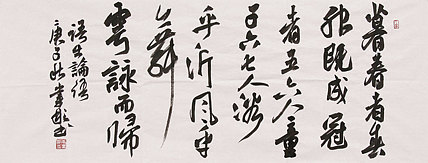 暮春者春
服既成冠
者五六人童
子六七人浴
乎沂風乎
舞
雩詠而歸
語出論語
庚子秋